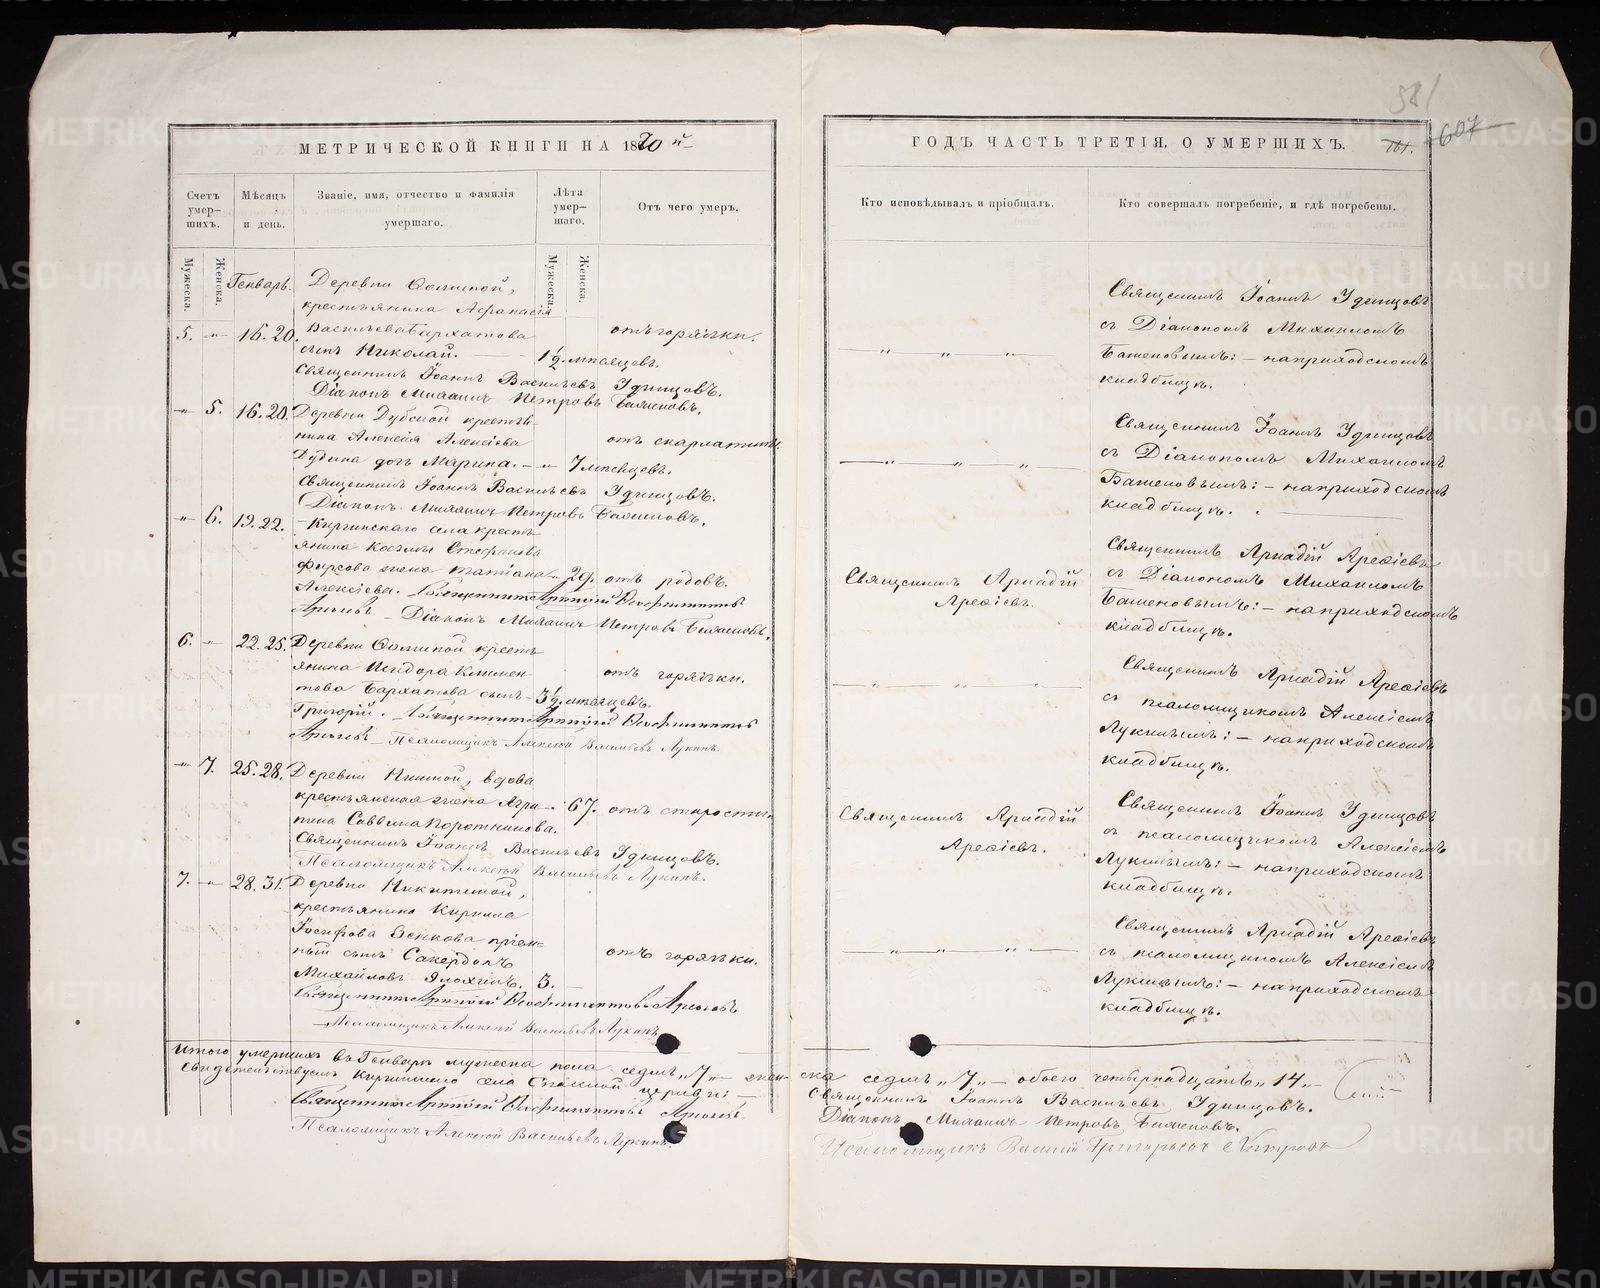 МЕТРИЧЕСКОЙ КНИГИ НА 1870 й
Счетъ умер-шихъ.
Мѣсяцъ и день.
Званіе, имя, отчество и фамилія умершаго.
Лѣта умер-шаго.
Отъ чего умеръ.
Мужеска. Женска.
Мужеска. Женска.
Генварь.
Деревни Ѳоминой,
крестьянина Аѳанасія
5. „ 16. 20. Васильева Бархатова отъ горячки.
сынъ Николай. 1½ мѣсяцевъ.
Священникъ Іоаннъ Васильевъ Удинцовъ.
Діаконъ Михаилъ Петровъ Баженовъ.
„ 5. 16. 20. Деревни Дубской крестья-
нина Алексѣя Алексѣева отъ скарлатины.
Дудина дочь Марина. „ 7 мѣсяцевъ.
Священникъ Іоаннъ Васильевъ Удинцовъ.
Діаконъ Михаилъ Петровъ Баженовъ.
„ 6. 19. 22. Киргинскаго села кресть-
янина Косьмы Стефанова
Фирсова жена Татіана „ 29. отъ родовъ.
Алексіева. Священникъ Аркадій
Діаконъ Михаилъ Петровъ Баженовъ.
6. „ 22. 25. Деревни Ѳоминой кресть-
янина Исидора Климен-
това Бархатова сынъ 3½ мѣсяцевъ. отъ горячки.
Григорій. Священникъ Аркадій
Псаломщикъ Алексѣй Васильевъ Лукинъ.
„ 7. 25. 28. Деревни вдова
крестьянская жена Агри- „ 67. отъ старости.
пина Саввина Короткихова.
Священникъ Іоаннъ Васильевъ Удинцовъ.
Псаломщикъ Алексѣй Васильевъ Лукинъ.
7. „ 28. 31. Деревни Никитиной,
крестьянина Кирилла
Іосифова пріем-
ный сынъ Сакердонъ отъ горячки.
Михайловъ 3.
Священникъ Аркадій
Псаломщикъ Алексѣй Васильевъ Лукинъ.
Итого умершихъ въ Генварѣ мужеска пола семь „7„ жен-
Свидѣтельствуемъ Киргинскаго села Спасской церкви:
Священникъ Аркадій
Псаломщикъ Алексѣй Васильевъ Лукинъ.
581
607
ГОДЪ ЧАСТЬ ТРЕТІЯ, О УМЕРШИХЪ.
Кто исповѣдывалъ и пріобщалъ.
Кто совершалъ погребеніе, и гдѣ погребены.
Священникъ Іоаннъ Удинцовъ
съ Діакономъ Михаиломъ
Баженовымъ: – на приходскомъ
кладбищѣ.
Священникъ Іоаннъ Удинцовъ
съ Діакономъ Михаиломъ
Баженовымъ: – на приходскомъ
кладбищѣ.
Священникъ Аркадій
Арефіевъ.
Священникъ Аркадій Арефіевъ
съ Діакономъ Михаиломъ
Баженовымъ: – на приходскомъ
кладбищѣ.
Священникъ Аркадій Арефіевъ
съ псаломщикомъ Алексіемъ
Лукинымъ: – на приходскомъ
кладбищѣ.
Священникъ Аркадій
Арефіевъ.
Священникъ Іоаннъ Удинцовъ
съ псаломщикомъ Алексіемъ
Лукинымъ: – на приходскомъ
кладбищѣ.
Священникъ Аркадій Арефіевъ
съ псаломщикомъ Алексіемъ
Лукинымъ: – на приходскомъ
кладбищѣ.
ска семь „7„ – обоего четырнадцать „14„
Священникъ Іоаннъ Васильевъ Удинцовъ.
Діаконъ Михаилъ Петровъ Баженовъ.
Псаломщикъ Василій Григорьевъ
METRIKI.GASO-URAL.RU